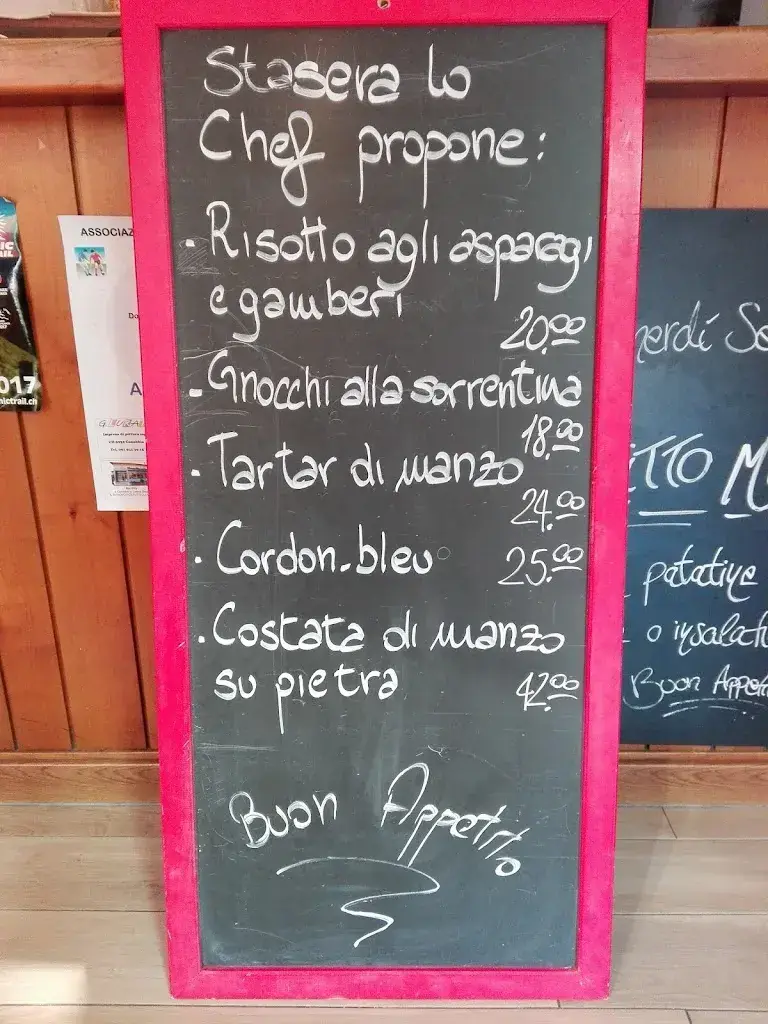 Stasera lo
Chef propone:
- Risotto agli asparagi
e gamberi
20.00
- Gnocchi alla sorrentina
18.00
- Tartar di manzo
24.00
. Cordon-bleu 25.00
. Costata di manzo
su pietra 42.00
Buon Appetito
ASSOCIAZ
A
017
nictrail.ch
nerdí Se
ITTO M
patatine
o insalat
Buon Appet